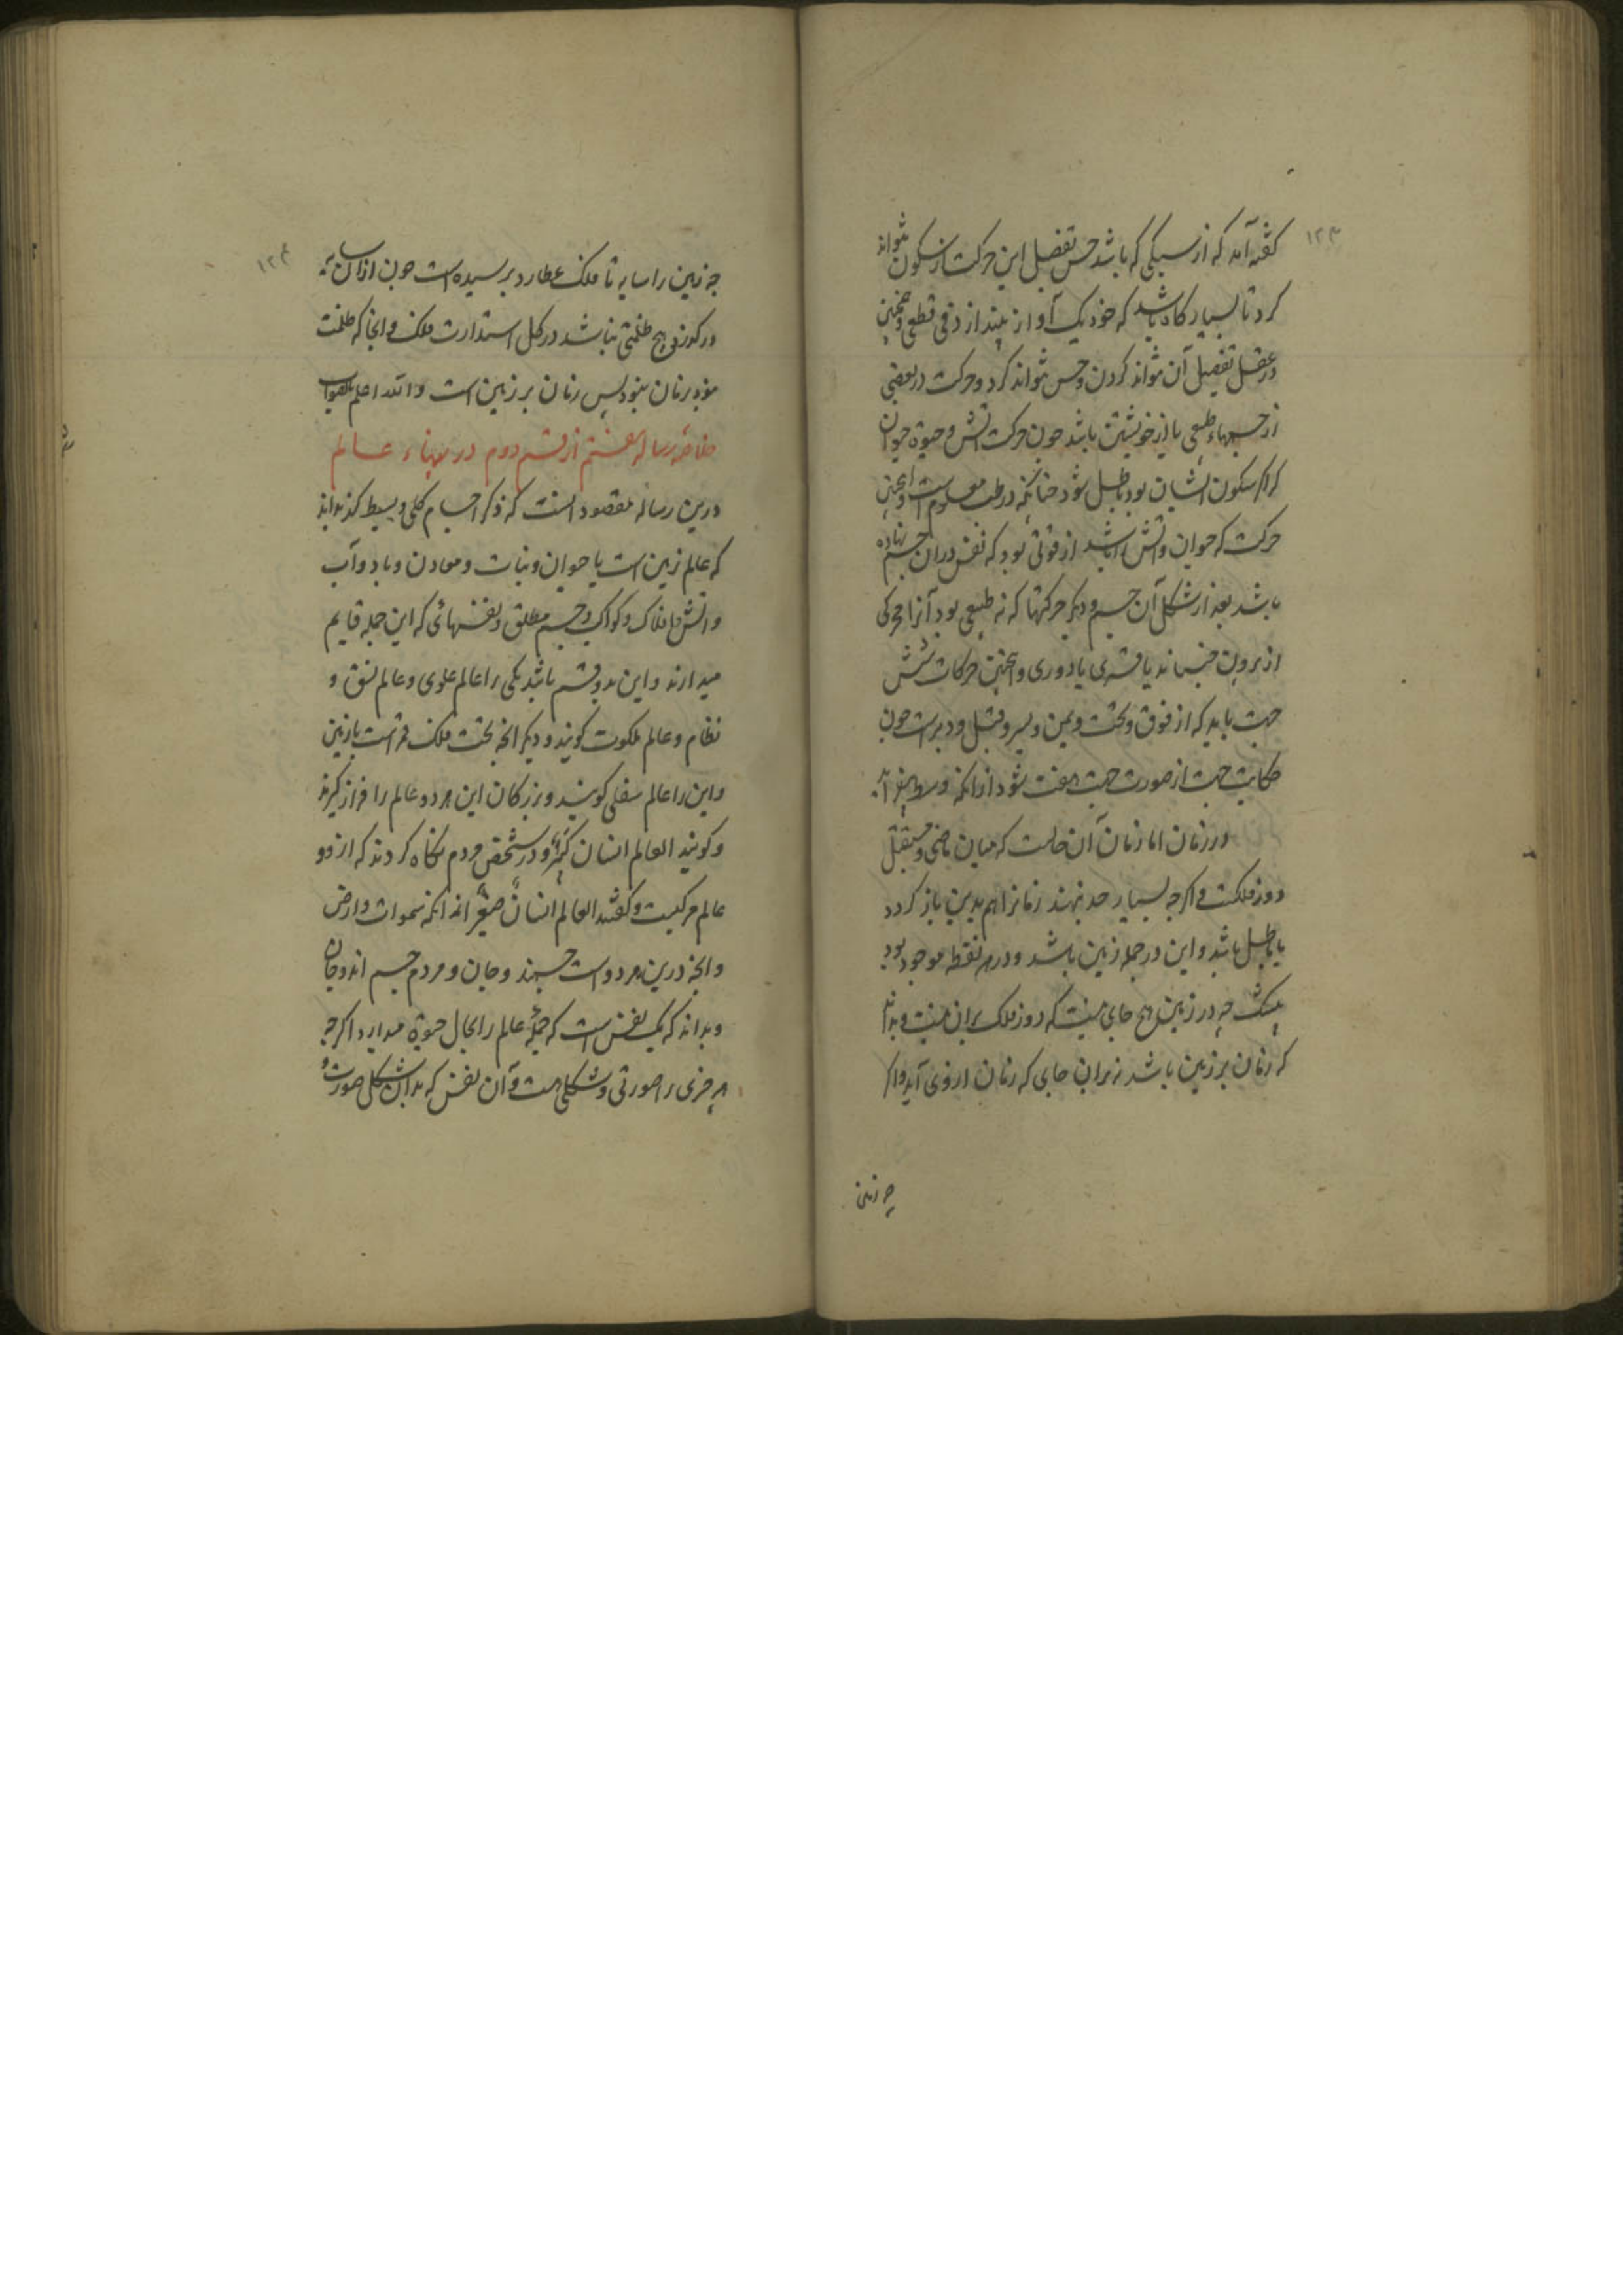 ۱۲۳
گفته آمد که از سبکی که باشد حس تفصیل این حرکت از سکون نتواند
کرد تا بسیار گاه باشد که خود یک آواز پندارد فی قطعی و همچنین
در عقل تفصیل آن تواند کردن و حس نتواند کرد و حرکت در بعضی
از جسمهاء طبعی با از خویشتن باشد جون حرکت اتش و حیوة حیوان
که اگر سکون ایشان بود باطل شود جنانکه در طب معلوم است و اینجنین
حرکت که حیوان و اتش را باشد از قوتی بود که نفس در ان جسم نهاده
باشد بعد از شکل آن جسم و دیکر حرکتها که نه طبیعی بود آنرا محرکی
از برون جنباند یا قسری یا دوری و اینجنین حرکات شش
جهت باید که از فوق و تحت و یمن و یسر و قبل و دبرست جون
حکایت جهت از صورت جهت هفت شود از انکه وسط
در زمان اما زمان آن حالست که میان ماضی و مستقبل
دور فلکست و اکرجه بسیار حد نهند زمانرا هم بدین باز کردد
یا باطل باشد و این در جمله زمین باشد و در هر نقطه موجود بود
بیشک جه در زمین هیج جای نیست که دور فلک بران نیست و بداند
که زمان بر زمین باشد زیران جای که زمان ازوی آید و اکر
چه زمین
۱۲۴
جه زمین را سایه تا فلک عطارد برسیده است جون ازان سایه
در کذری هیج ظلمتی نباشد در کل استدارت فلک و انجا که ظلمت
نبود زمان نبود پس زمان بر زمین است والله اعلم بالصواب
خلاصه رساله هفتم از قسم دوم در مهناء عالم
درین رساله مقصود انست که ذکر اجسام کلی و بسیط کند بداند
که عالم زمین است با حیوان و نبات و معادن و باد و آب
و اتش و افلاک و کواکب و جسم مطلق و نفسهائی که این جمله قایم
میدارند و این بدو قسم باشد یکی را عالم علوی و عالم نسق و
نظام و عالم ملکوت کویند و دیکر انجه تحت فلک قمر است با زمین
و این را عالم سفلی کویند و بزرکان این هر دو عالم را فراز کیرند
و کویند العالم انسان کبیر و در شخص مردم نگاه کردند که از دو
عالم مرکبست و کفتند العالم انسان صغیر از انکه سموات و ارض
و انجه درین هر دو است جسمند و جان و مردم جسم اند و جان
و بداند که یک نفس است که جمله عالم را بحال حیوة میدارد اکرجه
هر جزی را صورتی و شکلی هست و آن نفس که بدان شکل و صورت